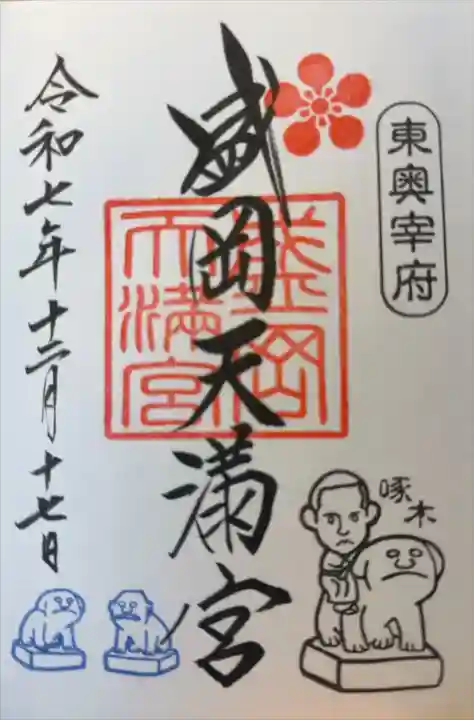 東奥宰府
盛岡天満宮
盛岡
天満宮
啄木
令和七年十二月十七日